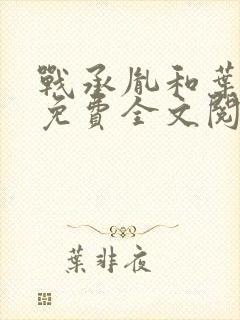 戰承胤和葉
免費全文閱
葉非夜